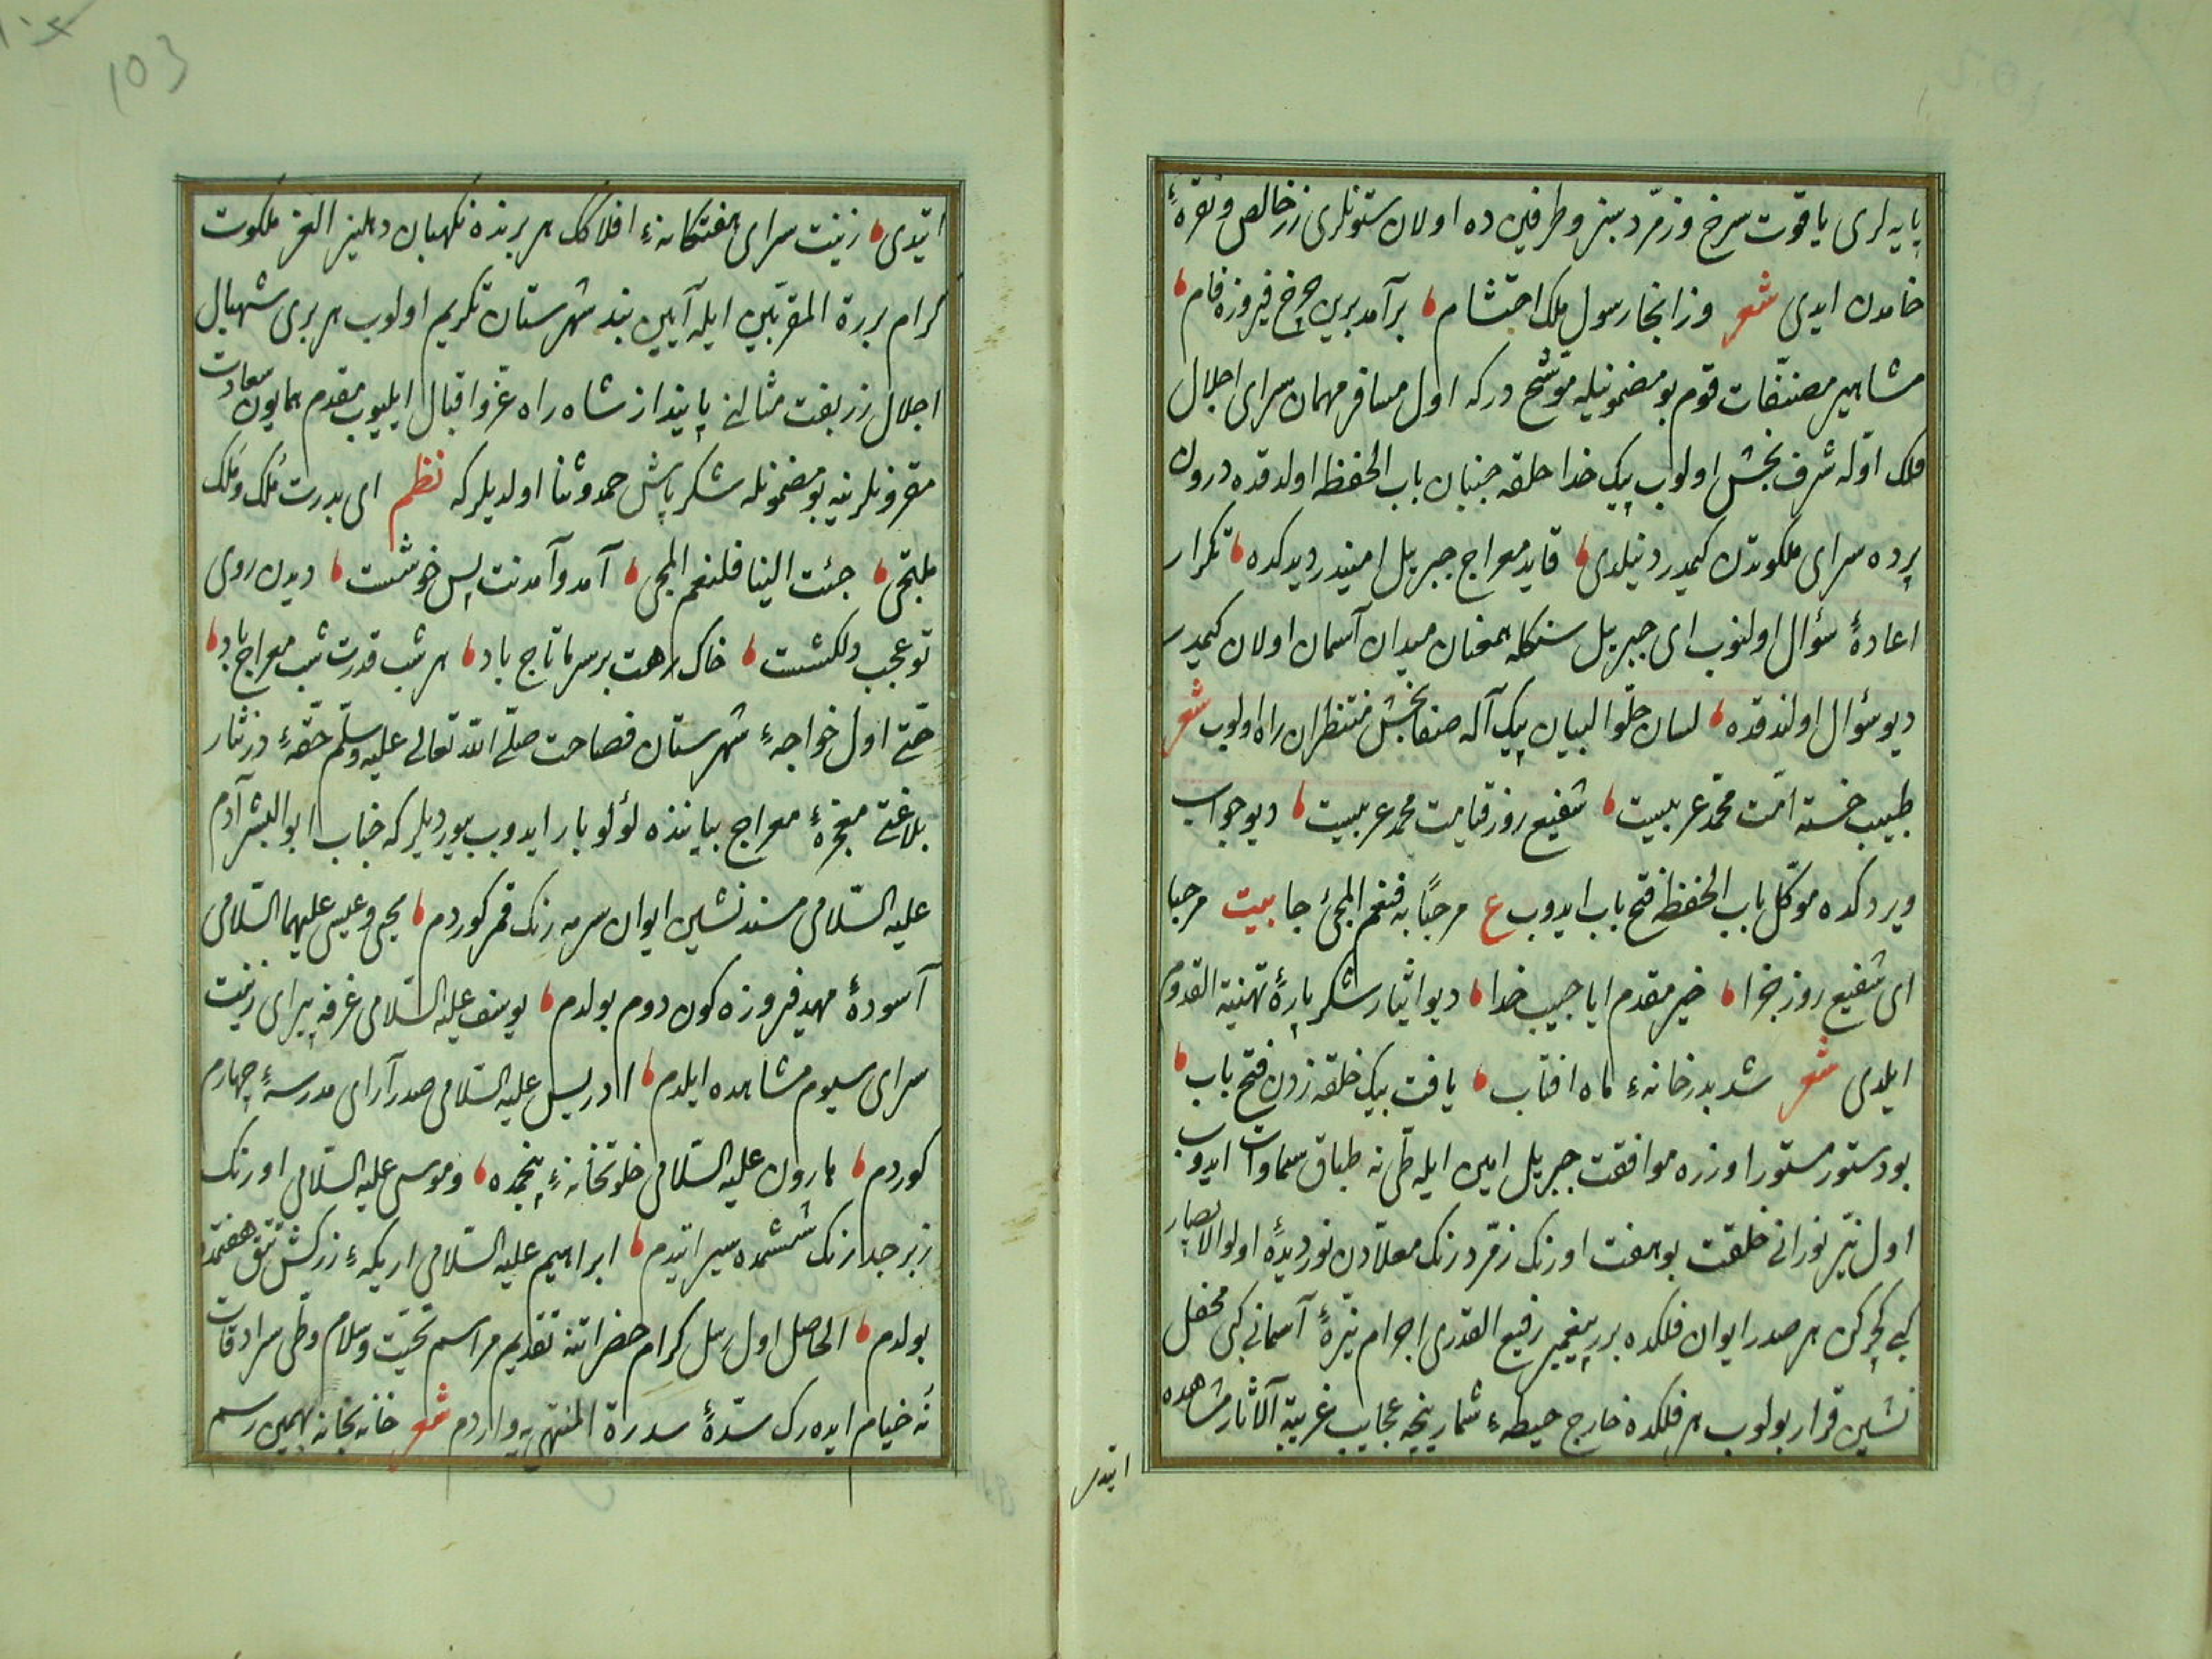 پایه لری یاقوت سرخ و زمرّد سبز و طرفین ده اولان ستونلری زر خالص و نقرهٔ
خامدن ایدی شعر وز انجا رسول ملک احتشام برآمد برین چرخ فیروزه فام
مشاهیر مصنّفات قوم بو مضمونیله موشّح درکه اول مسافر مهمان سرای اجلال
فلک اوّله شرف بخش اولوب پیک خدا حلقه جنبان باب الحفظه اولدقده درون
پرده سرای ملکوتدن کیمدر دنیلدی قاید معراج جبریل امیندر دیدکده تکرار
اعادهٔ سؤال اولنوب ای جبریل سنکله همعنان میدان آسمان اولان کیمدر
دیو سؤال اولندقده لسان حلو البیان پیک آله صفابخش منتظران راه اولوب شعر
طبیب خسته امّت محمّد عربیست شفیع روز قیامت محمد عربیست دیو جواب
ویردکده موکّل باب الحفظه فتح باب ایدوب ع مرحبًا به فنعم المجئ جا بیت مرحبا
ای شفیع روز جزا خیر مقدم ایا حبیب خدا دیو ایثار شکر پارهٔ تهنیة القدوم
ایلدی شعر شد بدر خانهٔ ماه افتاب یافت بیک حلقه زدن فتح باب
بو دستور مستور اوزره موافقت جبریل امین ایله طی نه طباق سماوات ایدوب
اول نیّر نورانی خلقت بو هفت اورنک زمّرد رنک معلّادن نور دیدهٔ اولو الابصار
کبی کچرکن هر صدر ایوان فلکده بر پیغمبر رفیع القدری اجرام نیّرهٔ آسمانی کبی محفل
نشین قرار بولوب هر فلکده خارج حیطهٔ شمار نیجه عجایب غریبة الآثار مشاهده
ایتدی
ایتدی زینت سرای هفتکانهٔ افلاکک هر برنده نکهبان دهلیز العز ملکوت
کرام بررة المقرّبین ایله آیین بند شهرستان تکریم اولوب هر بری شهبال
اجلال زربفت مثالنی پاینداز شاه راه عزّ و اقبال ایلیوب مقدم همایون سعادت
مقرونلرینه بو مضمونله شکر پاش حمد و ثنا اولدیلر که نظم ای بدرت مُلک و مَلک
ملتجی جئت الینا فلنعم المجی آمد و آمدنت پس خوشست دیدن روی
تو عجب دلکشست خاک رهت بر سر ما تاج باد هر شب قدرت شب معراج باد
حتّی اول خواجهٔ شهرستان فصاحت صلّی الله تعالی علیه وسلّم حقّهٔ درنثار
بلاغتی معجزهٔ معراج بیاننده لؤلؤ بار ایدوب بیوردیلر که جناب ابو البشر آدم
علیه السّلامی مسند نشین ایوان سرمه رنک قمر کوردم یحیی و عیسی علیهما السّلامی
آسودهٔ مهد فیروزه کون دوم بولدم یوسف علیه السّلامی غرفه پیرای زینت
سرای سیوم مشاهده ایلدم ادریس علیه السّلامی صدر آرای مدرسهٔ چهارم
کوردم هارون علیه السّلامی خلوتخانهٔ پنجمده و موسی علیه السّلامی اورنک
زبرجد رنک ششمده سیر ایتدم ابراهیم علیه السّلامی اریکهٔ زرکش تتق هفتمده
بولدم الحاصل اول رسل کرام حضراتنه تقدیم مراسم تحیّت و سلام و طی سرادقات
نُه خیام ایده رک سدّهٔ سدرة المنتهی یه واردم شعر خانه بخانه بهمین رسم
103